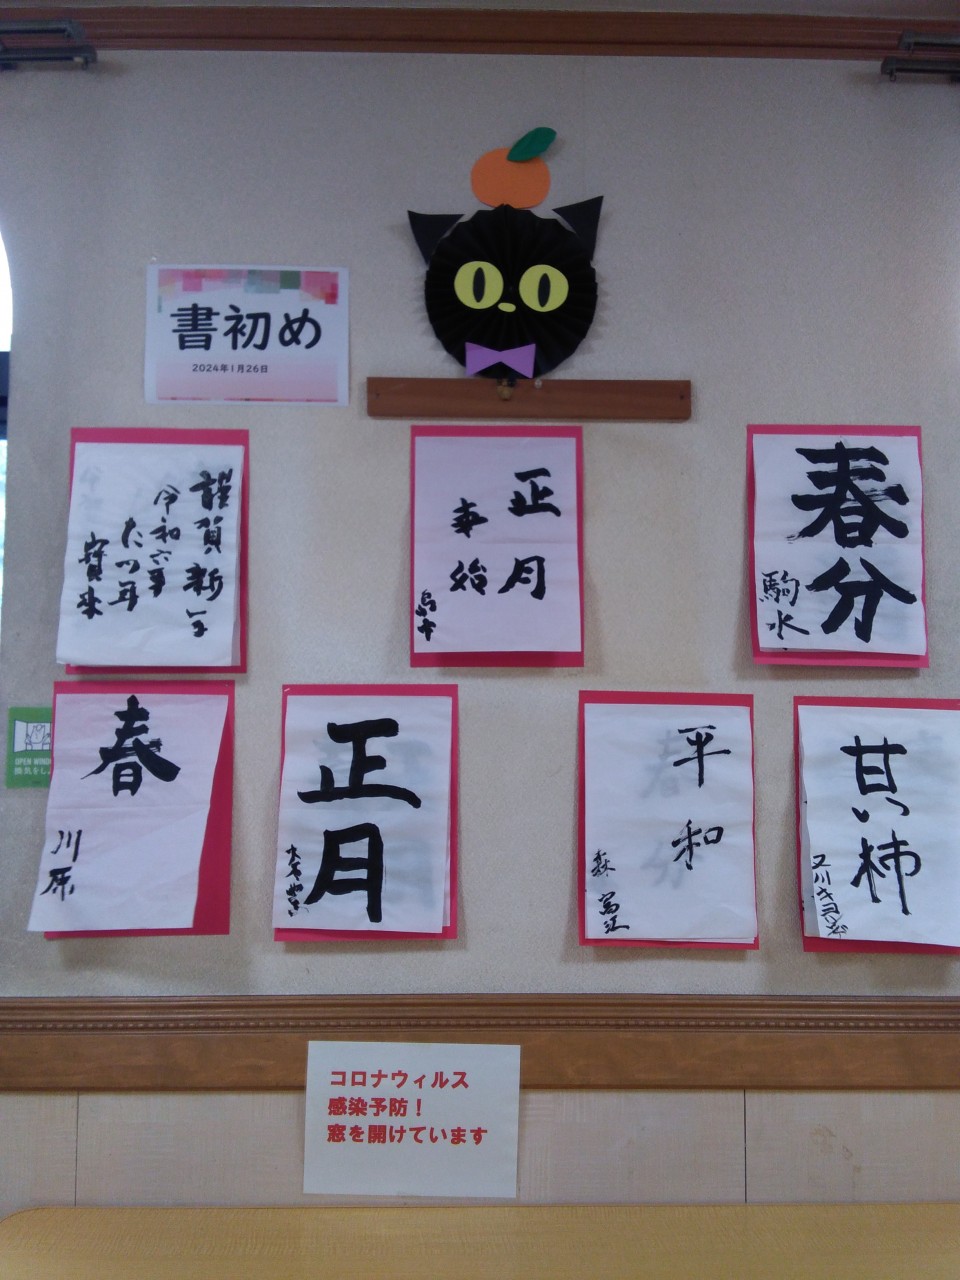 書初め
2024年1月26日
謹賀新年
令和六年
たつ年
正月
事始
春分
駒水
春
川原
正月
平和
森 富江
甘い
柿
OPEN WINDOW
コロナウィルス
感染予防！
窓を開けています